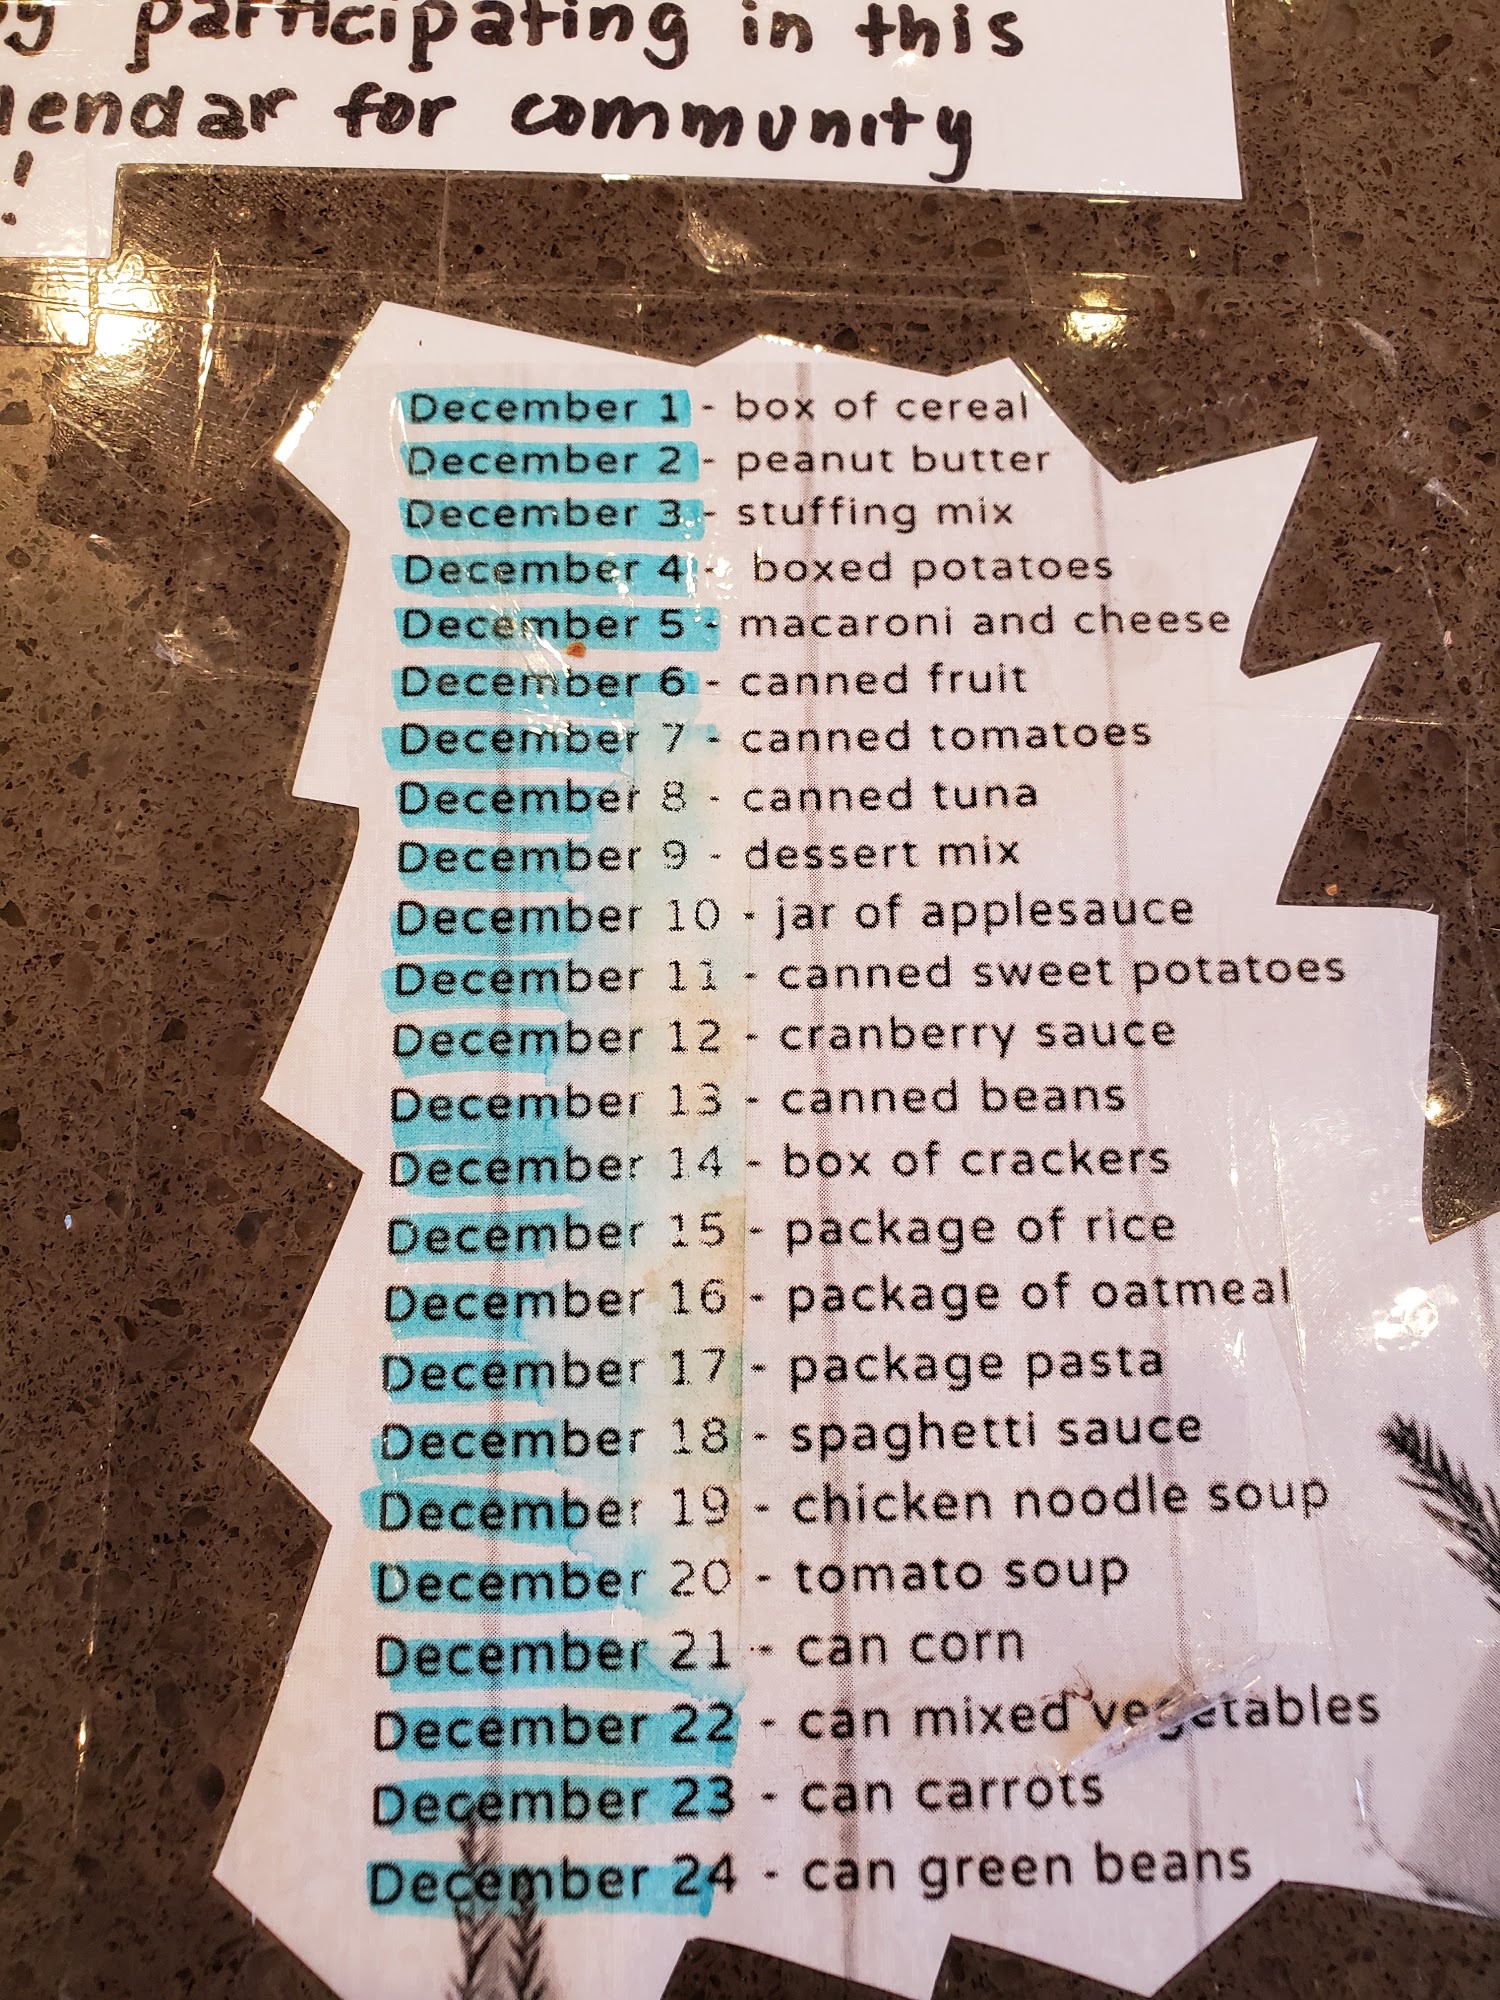 participating in this
for community
!
December 1 - box of cereal
December 2 - peanut butter
December 3 - stuffing mix
December 4 - boxed potatoes
December 5 - macaroni and cheese
December 6 - canned fruit
December 7 - canned tomatoes
December 8 - canned tuna
December 9 - dessert mix
December 10 - jar of applesauce
December 11 - canned sweet potatoes
December 12 - cranberry sauce
December 13 - canned beans
December 14 - box of crackers
December 15 - package of rice
December 16 - package of oatmeal
December 17 - package pasta
December 18 - spaghetti sauce
December 19 - chicken noodle soup
December 20 - tomato soup
December 21 - can corn
December 22 - can mixed vegetables
December 23 - can carrots
December 24 - can green beans